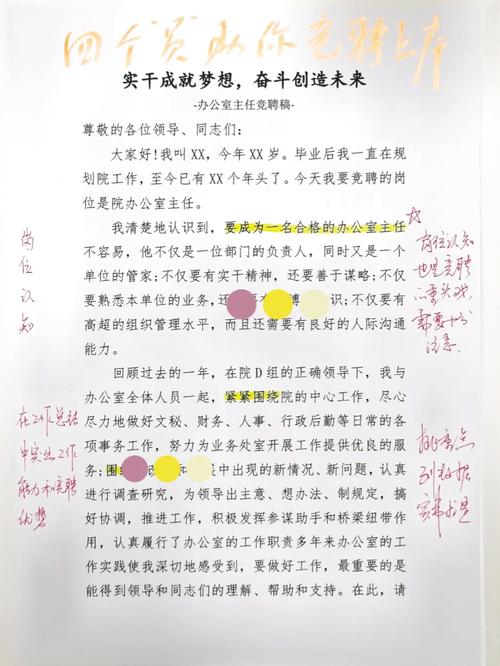 四个"会"助你竞聘上岸
实干成就梦想，奋斗创造未来
-办公室主任竞聘稿-
尊敬的各位领导、同志们：
大家好！我叫 XX，今年 XX 岁。毕业后我一直在规
划院工作，至今已有 XX 个年头了。今天我要竞聘的岗
位是院办公室主任。
我清楚地认识到，要成为一名合格的办公室主任
不容易，他不仅是一位部门的负责人，同时又是一个
单位的管家；不仅要有实干精神，还要善于谋略；不仅
要熟悉本单位的业务，还 识；不仅要有
高超的组织管理水平，而且还需要有良好的人际沟通
能力。
岗位认知
岗位认知
也是竞聘
重头戏，
需要十分
注意.
回顾过去的一年，在院 D 组的正确领导下，我与
办公室全体人员一起，紧紧围绕院的中心工作，尽心
尽力地做好文秘、财务、人事、行政后勤等日常的各
项事务工作，努力为业务处室开展工作提供优良的服
务；围 和 展中出现的新情况、新问题，认真
进行调查研究，为领导出主意、想办法、制规定，搞
好协调，推进工作，积极发挥参谋助手和桥梁纽带作
用，认真履行了办公室的工作职责多年来办公室的工
作实践使我深切地感受到，要做好工作，最重要的是
能得到领导和同志们的理解、帮助和支持。在此，请
在工作总结
中突出工作
能力和竞聘
优势
列数据